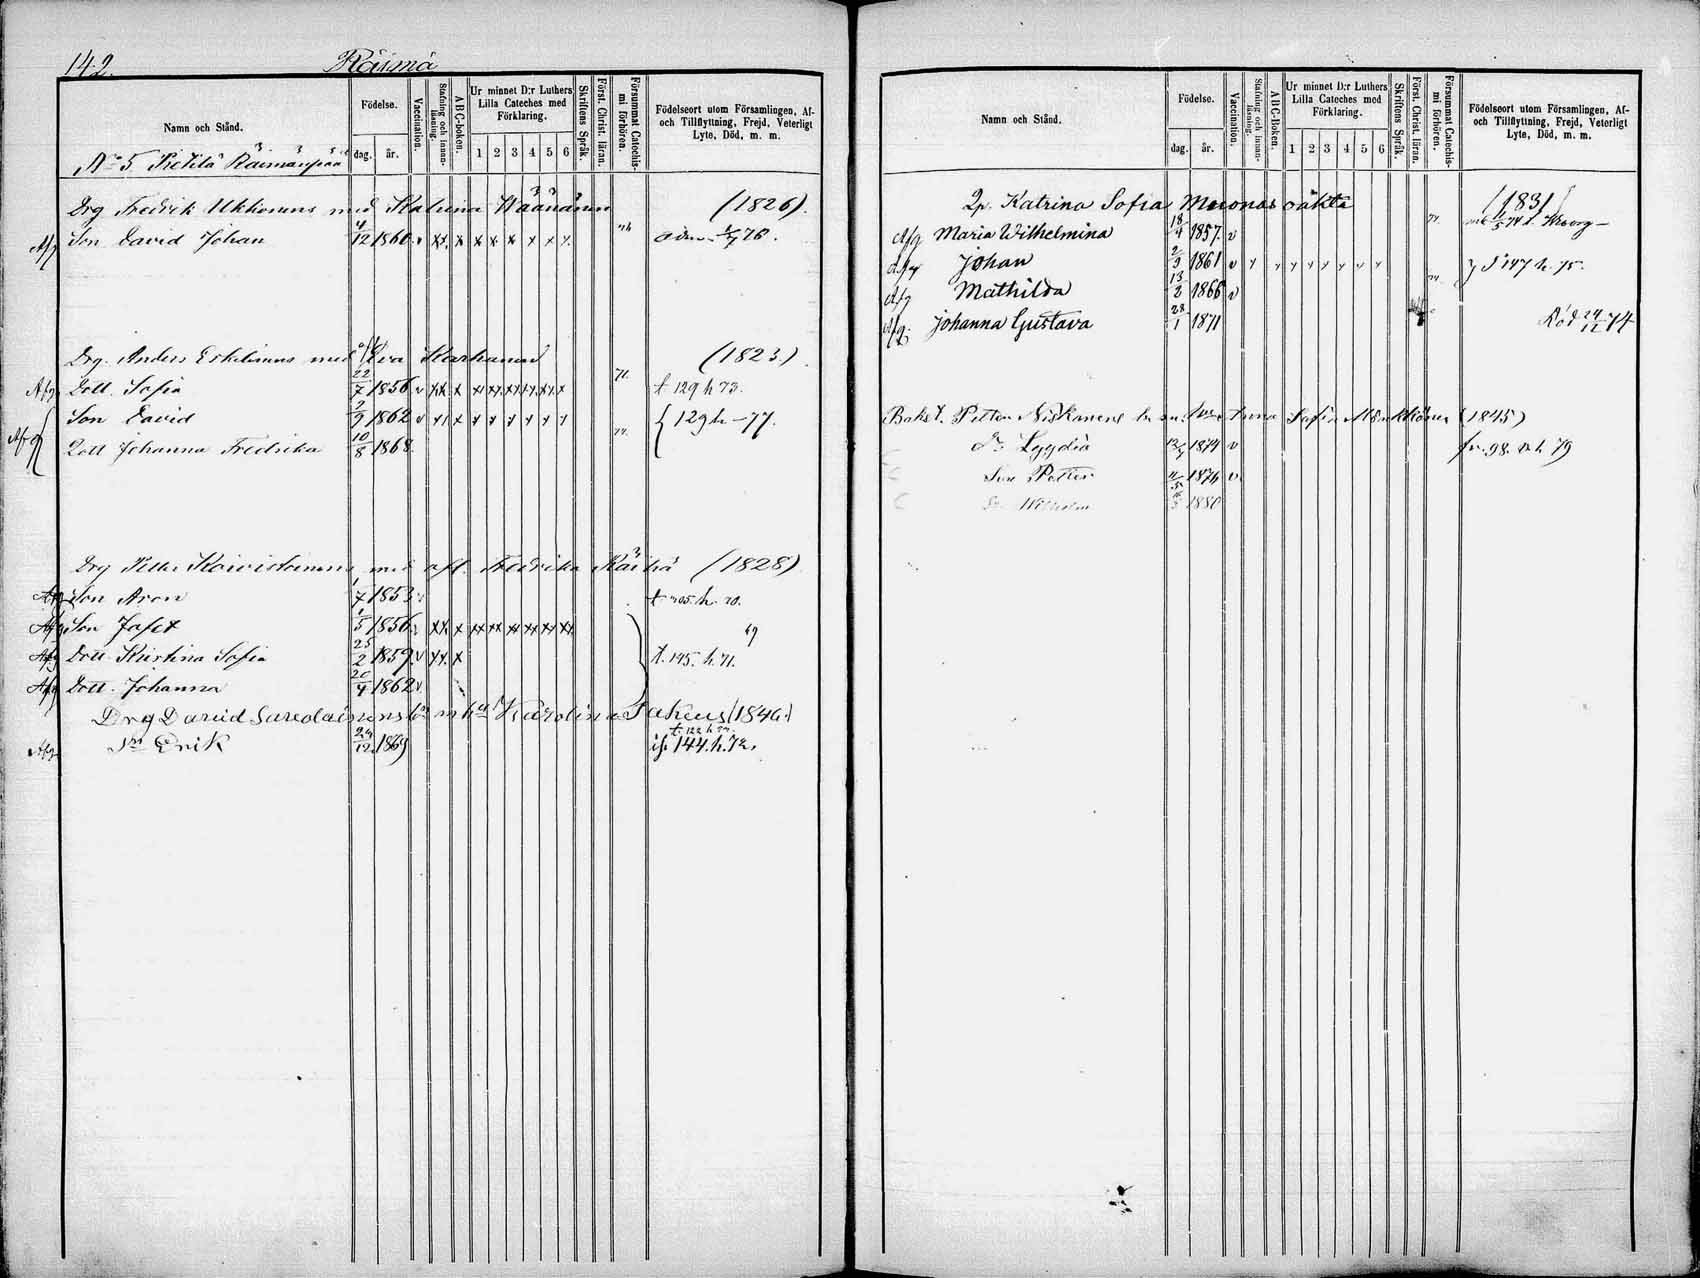 142. Räsmä
Namn och Stånd.
Födelse.
dag. år.
Vaccination.
Stafning och innanläsning.
ABC-boken.
Ur minnet D:r Luthers Lilla Cateches med Förklaring.
1 2 3 4 5 6
Skriftens Språk.
Först. Christ. läran.
Försummat Catechismi förhören.
Födelseort utom Församlingen, Af- och Tillflyttning, Frejd, Veterligt Lyte, Död, m. m.
No 5
Drg Fredrik Ukkonens med Katrina Wäänänen (1826).
Afg Son David Johan 4/12 1860 v xx x x x x x x x 76.
Drg. Anders Eskelinens med Eva Karhunen (1823.)
Afg Dott. Sofia 22/7 1856 v xx x t 129 h 73.
Son David 7/9 1862 v 129 h - 77.
Afg Dott Johanna Fredrika 10/8 1868
Drg Petter Koivistoinens med afl. Fredrika Räihä (1828)
Afg Son Aron 1/7 1853
Afg Son Jafet 1/5 1856 69
Afg Dott. Kristina Sofia 25/2 1859 v t. 145. h. 71.
Afg Dott. Johanna 20/4 1862 v.
Drg David Karolina (1846.)
t. 122 h
Afg Sn Erik 24/12 1869 144. h. 72.
Namn och Stånd.
Födelse.
dag. år.
Vaccination.
Stafning och innanläsning.
ABC-Boken.
Ur minnet D:r Luthers Lilla Cateches med Förklaring.
1 2 3 4 5 6
Skriftens Språk.
Först. Christ. läran.
Försummat Catechismi förhören.
Födelseort utom Församlingen, Af- och Tillflyttning, Frejd, Veterligt Lyte, Död, m. m.
Katrina Sofia Muonas oäkta (1831)
Afg Maria Wilhelmina 18/4 1857. v
Afg Johan 2/9 1861 v 147 h. 75.
Afg Mathilda 13/3 1866 v
Afg. Johanna Gustava 28/1 1871 Död 24/12 74
Petter Niskanens Anna Sofia (1845)
Lyydia 1874 v fr. 98. h. 79
Son Petter 11/5 1876 v.
Wilhelm 1880